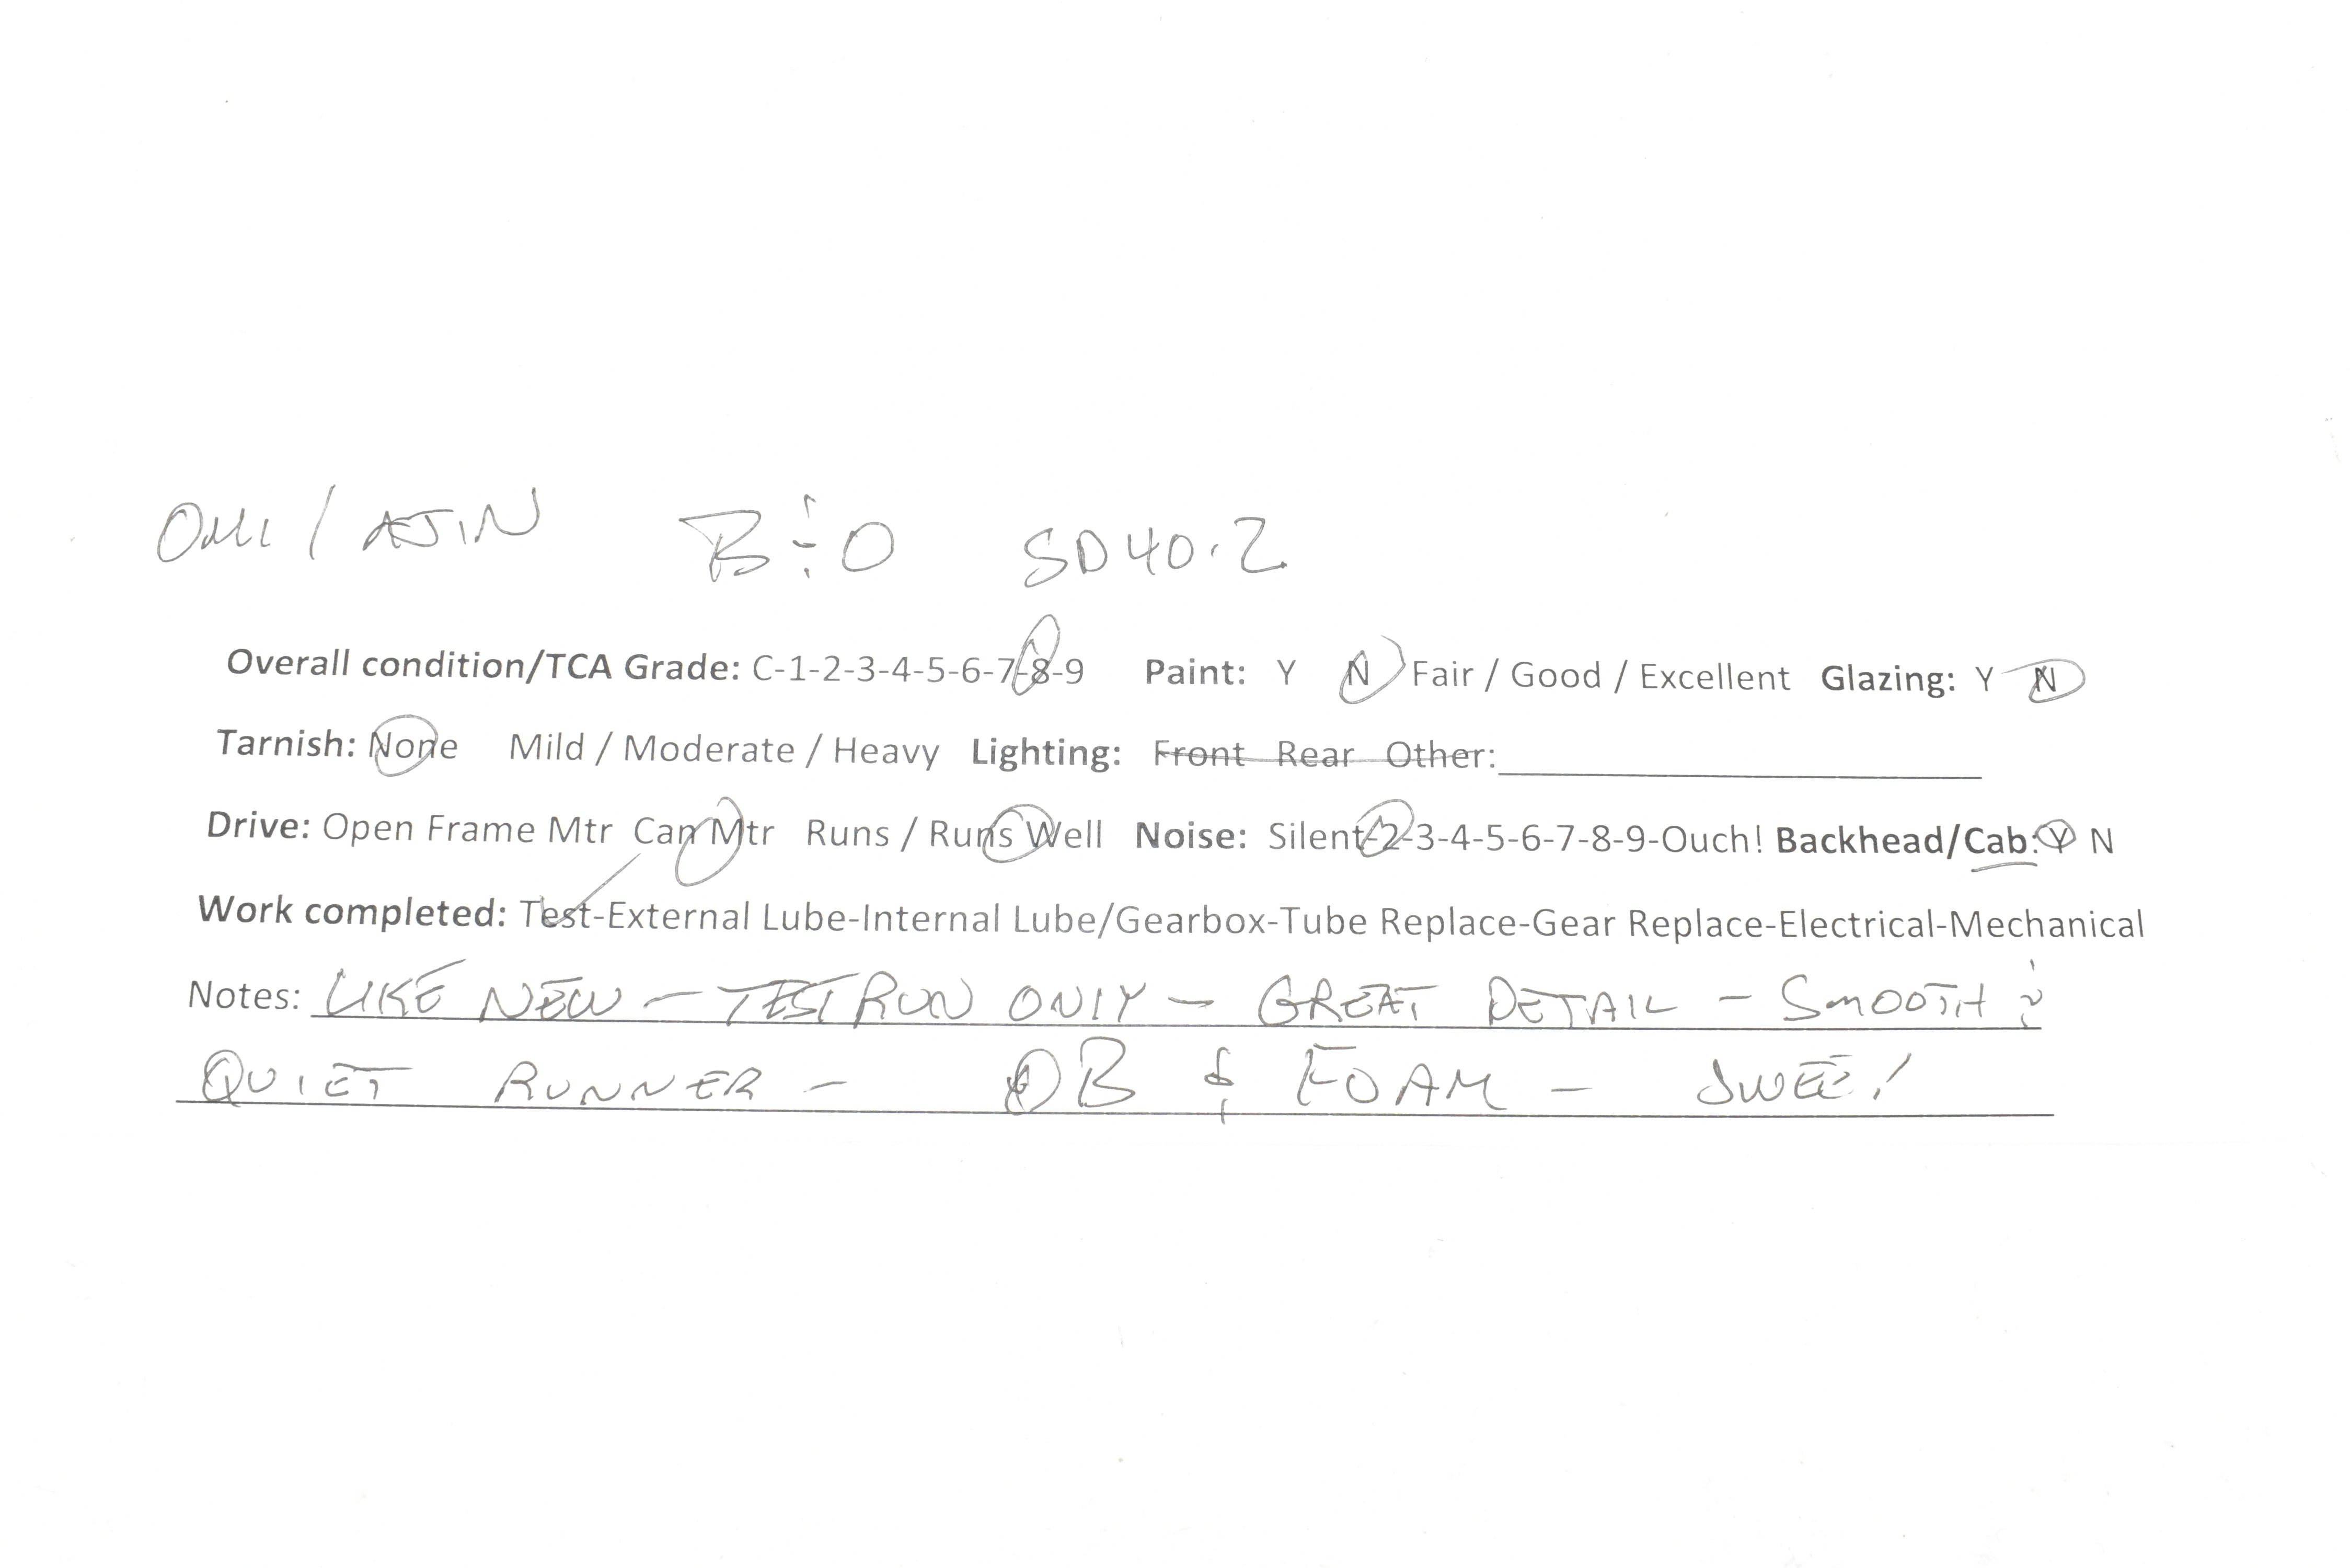 OMI / AJIN B&O SD40-2
Overall condition/TCA Grade: C-1-2-3-4-5-6-7-8-9 Paint: Y N Fair / Good / Excellent Glazing: Y N
Tarnish: None Mild / Moderate / Heavy Lighting: Front Rear Other:
Drive: Open Frame Mtr Can Mtr Runs / Runs Well Noise: Silent-2-3-4-5-6-7-8-9-Ouch! Backhead/Cab: Y N
Work completed: Test-External Lube-Internal Lube/Gearbox-Tube Replace-Gear Replace-Electrical-Mechanical
Notes: LIKE NEW - TEST RUN ONLY - GREAT DETAIL - SMOOTH &
QUIET RUNNER - OB & FOAM - SWEET!